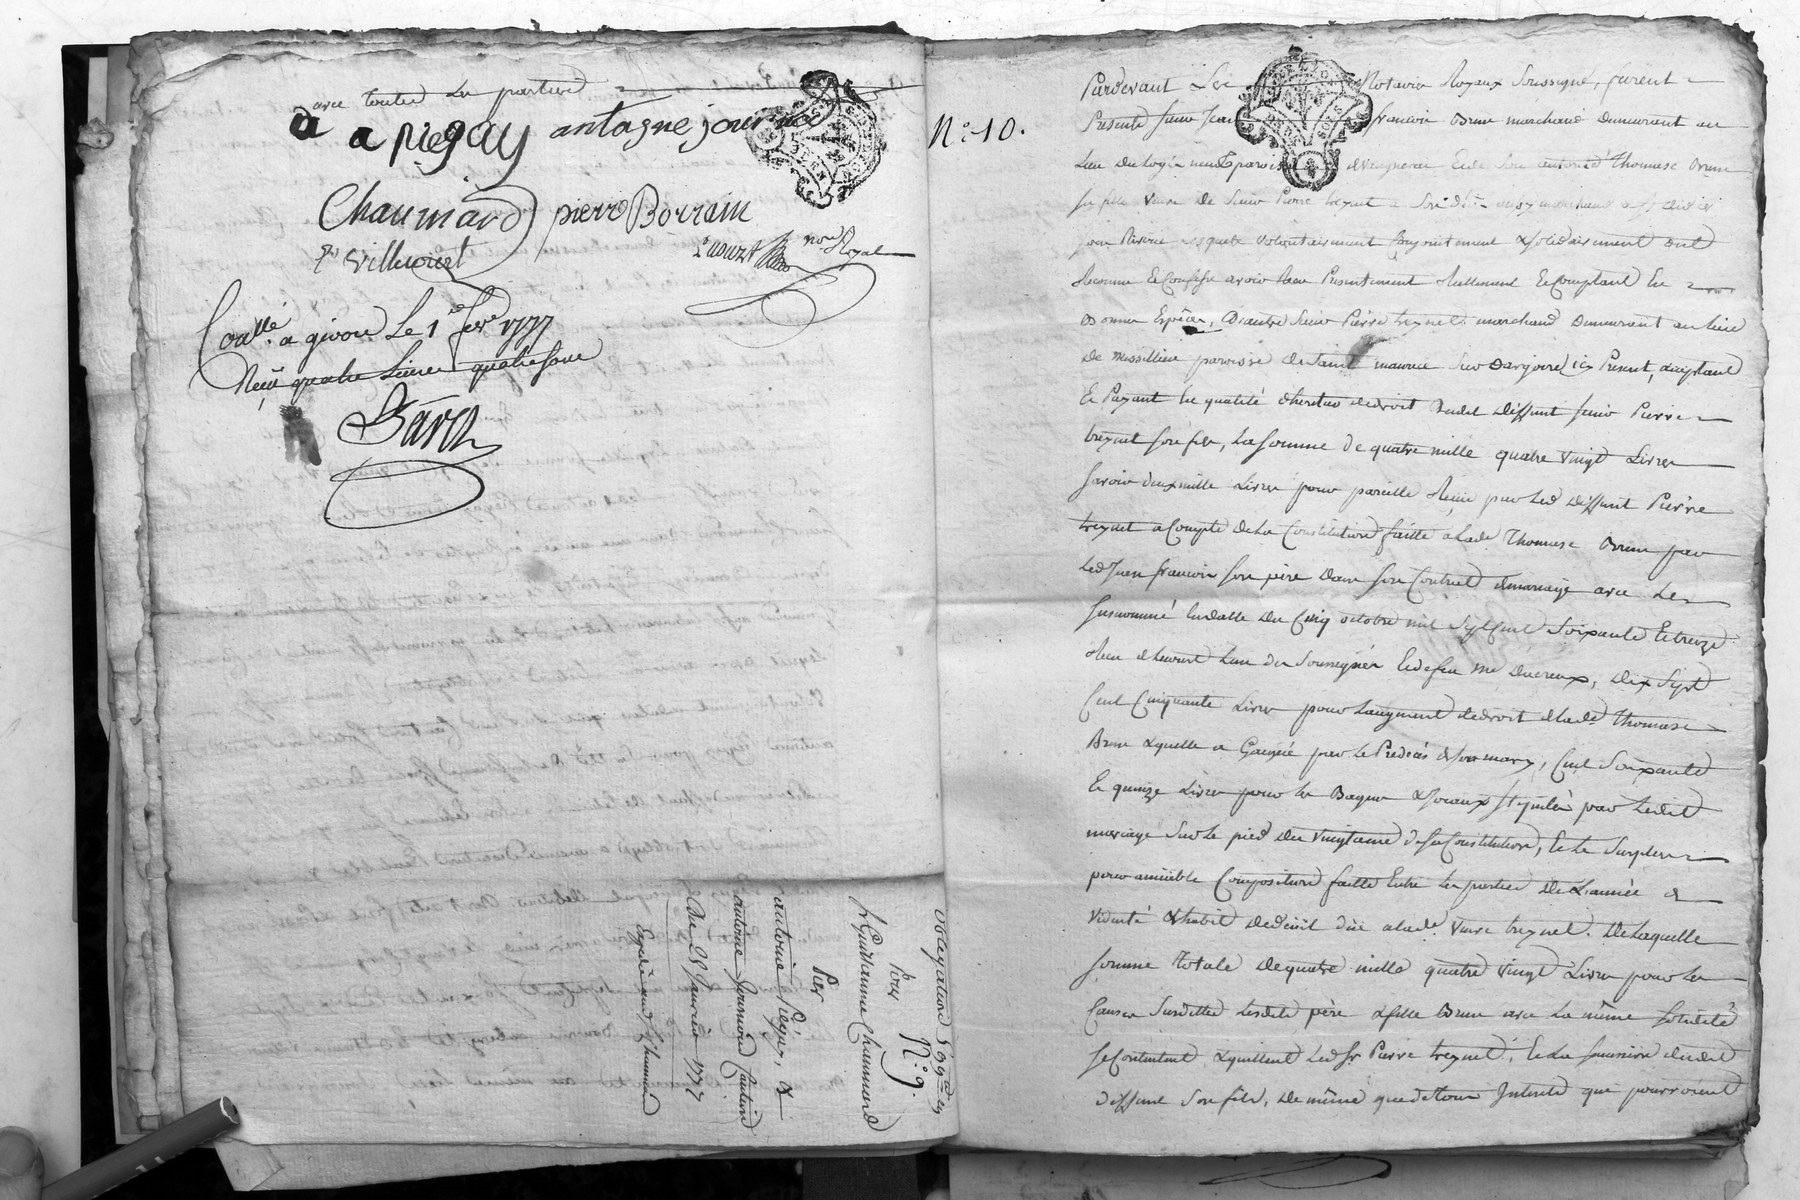 avec toutes les parties
a a piegay antoigne journoud
Chaumard pierre Borrain
Villecourt
no.re Royal
Con.llé a givors Le 1.er fev.er 1777
Reçu quatre Livres quatre sous
Baron
N.o 10.
Pardevant Les Notaires Royaux Soussignés, furent
Présents sieur Jean francois Brun marchand demeurant au
Lieu du Logis neuf paroisse Et de Son autorité Thomase Brun
sa fille veuve de Sieur Pierre treynet
volontairement Conjointement & solidairement ont
Reconnu & Confessé avoir Reçu Présentement Réellement & Comptant En
Bonnes Espèces, D'autre Sieur Pierre treynet marchand Demeurant au Lieu
De Missillieu paroisse de Saint maurice Sur Dargoire icy Présent, acceptant
Et Payant En qualité d'héritier de droit dudit Deffunt sieur Pierre
treynet son fils, La somme de quatre mille quatre vingt Livres
savoir deux mille Livres pour pareille Reçue par Led Deffunt Pierre
treynet a Compte de La Constitution faitte a Lade Thomase Brun par
Led Jean francois son père Dans son Contrat de mariage avec Le
susnommé En datte Du Cinq octobre mil Sept Cent Soixante Et treize
Reçu L'un des Soussignés Et de feu Me Ducreux, Dix Sept
Cent Cinquante Livres pour L'augment de droit de Lade Thomase
Brun Laquelle a Gagnée par Le Prédécès de son mary, Cent Soixante
Et quinze Livres pour les Bagues & Joyaux stipulés par Ledit
mariage Sur Le pied Du vingtième de sa Constitution, Et Le Surplus
pour amiable Composition faitte Entre Les parties De L'année de
viduité & habit de deüil düe a lade veuve treynet. De Laquelle
somme totale de quatre mille quatre vingt Livres pour les
Causes Susdittes Lesdits père & fille Brun avec La même solidité
se Contentent & quittent Led Sr Pierre treynet, Et La succession dudit
deffunt Son fils, De même que de tous Interets qui pourroient
obligation
pour N.o 9.
Sr Guillaume Chaumard
Par
antoine Piegay, &
antoine journoud Caution
Du 28 Janvier 1777
Expédié aud Sr Chaumard